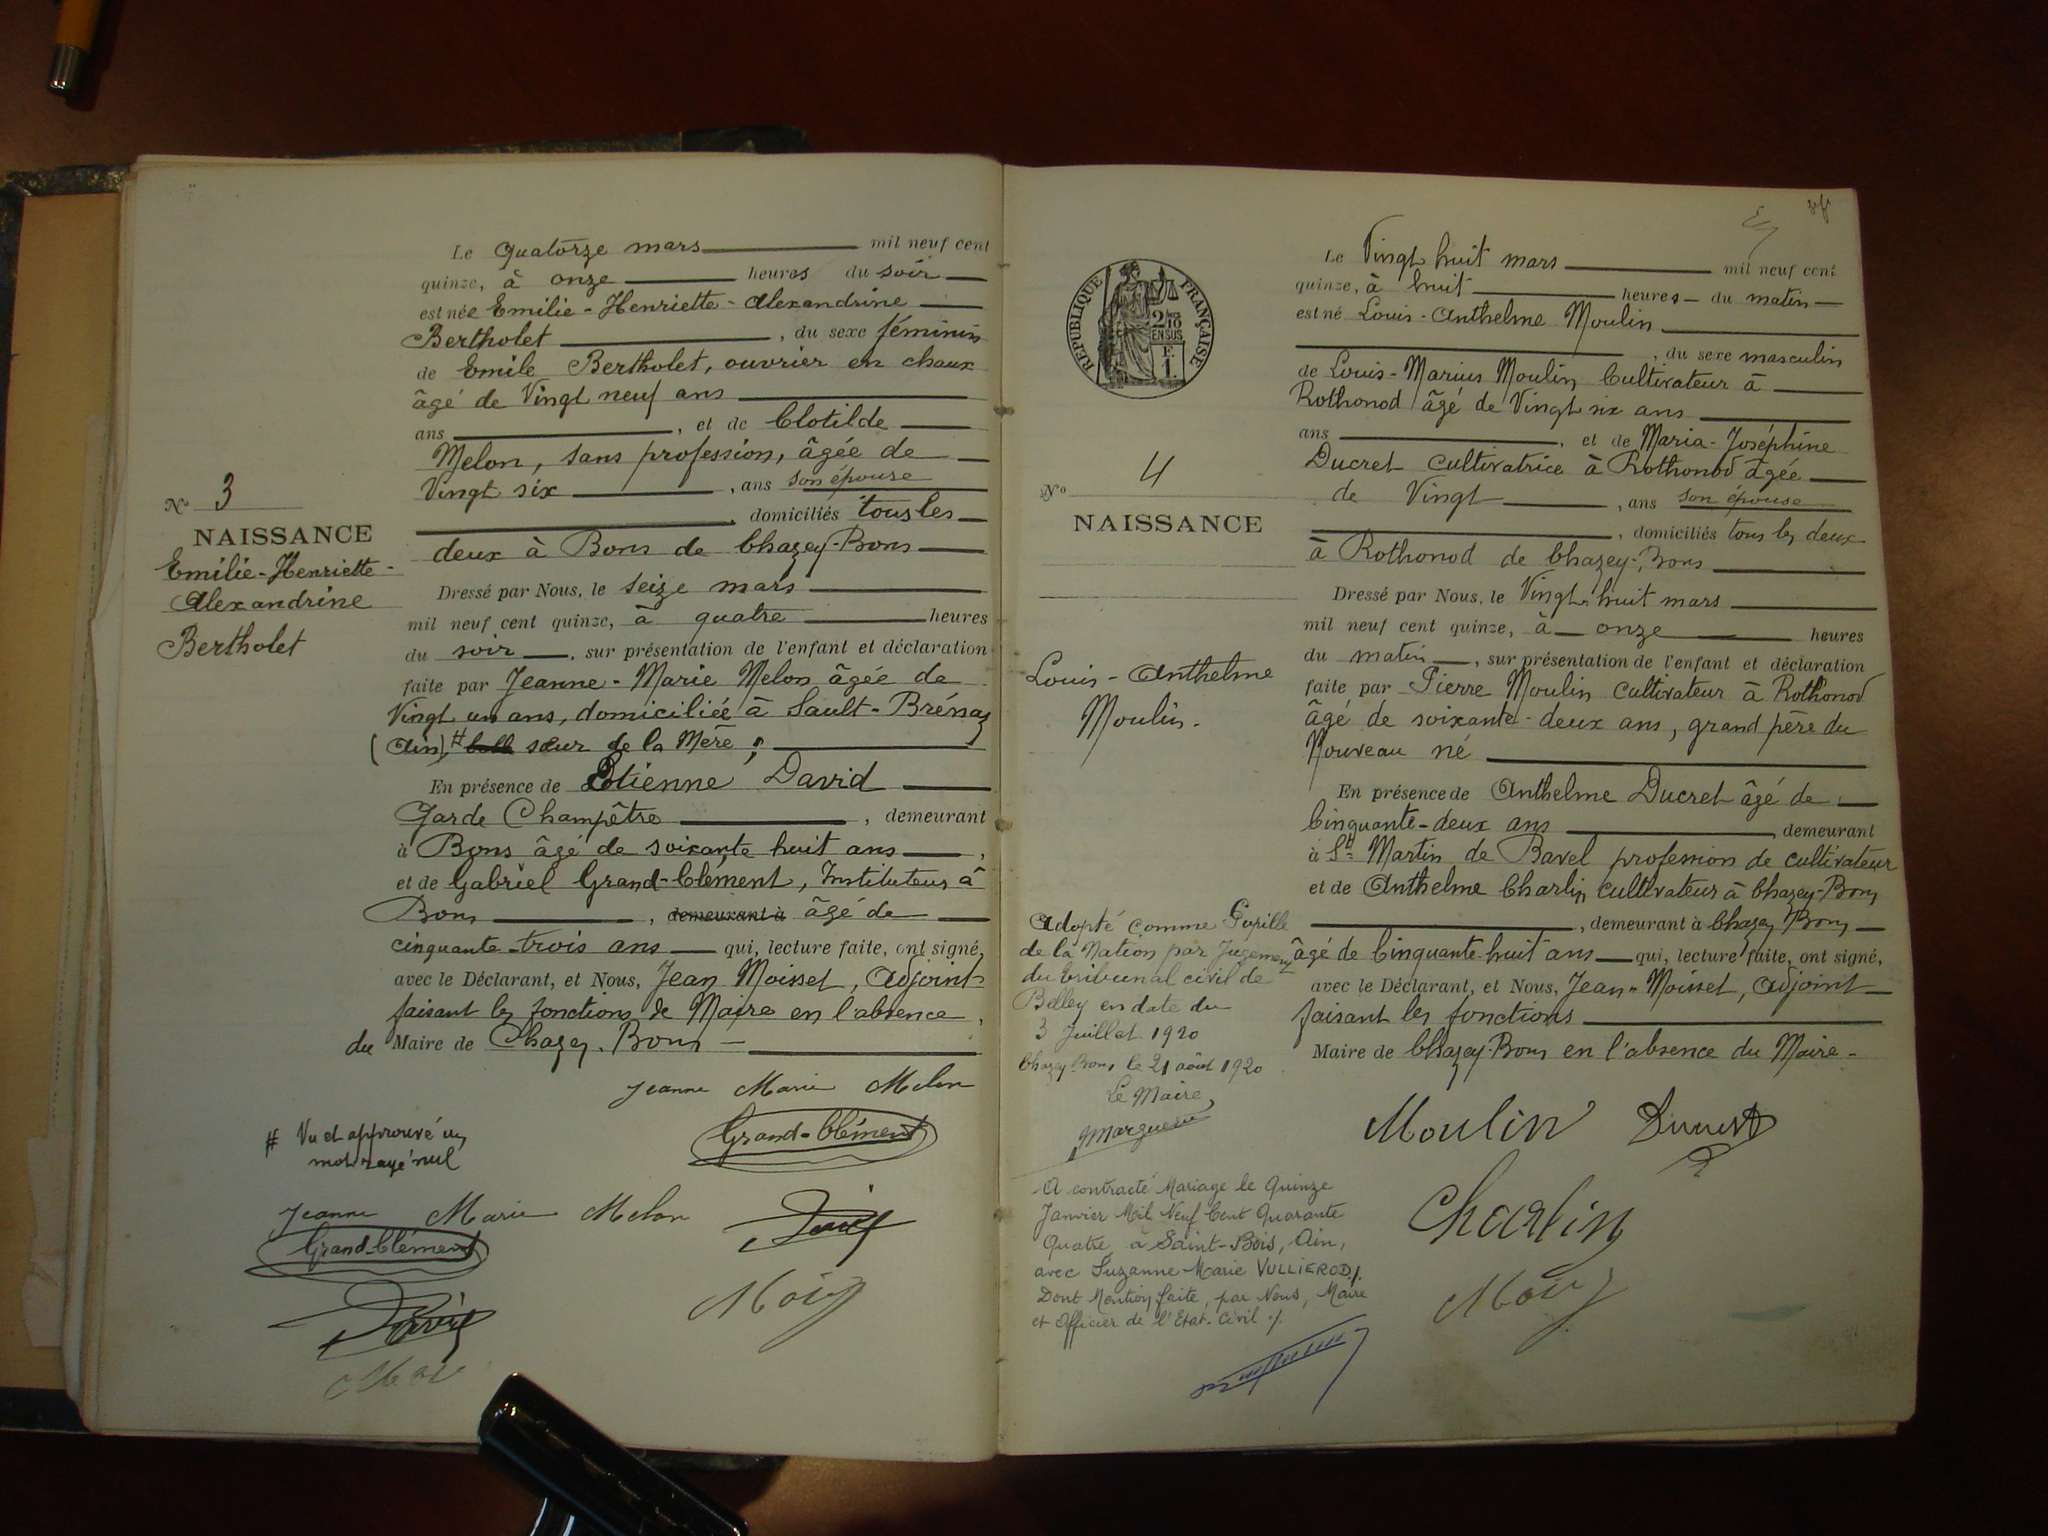 Le quatorze mars mil neuf cent
quinze, à onze heures du soir
est née Emilie-Henriette-Alexandrine
Bertholet, du sexe féminin
de Emile Bertholet, ouvrier en chaux
âgé de Vingt neuf ans
ans, et de Clotilde
Melon, sans profession, âgée de
Vingt six, ans son épouse
, domiciliés tous les
deux à Bons de Chazey-Bons
Dressé par Nous, le seize mars
mil neuf cent quinze, à quatre heures
du soir, sur présentation de l'enfant et déclaration
faite par Jeanne-Marie Melon âgée de
Vingt un ans, domiciliée à Sault-Brénaz
(Ain), # belle sœur de la Mère
En présence de Etienne David
Garde Champêtre, demeurant
à Bons âgé de soixante huit ans,
et de Gabriel Grand-Clément, Instituteur à
Bons, demeurant à âgé de
cinquante-trois ans qui, lecture faite, ont signé
avec le Déclarant, et Nous, Jean Moisset, Adjoint
faisant les fonctions de Maire en l'absence
du Maire de Chazey-Bons
Jeanne Marie Melon
Grand-Clément
# Vu et approuvé un
mot rayé nul
Jeanne Marie Melon
David
Grand-Clément
David
No 3
NAISSANCE
Emilie-Henriette-
Alexandrine
Bertholet
RÉPUBLIQUE FRANÇAISE
2/10
EN SUS
F.
1.
Le Vingt huit mars mil neuf cent
quinze, à huit heures du matin
est né Louis-Anthelme Moulin
, du sexe masculin
de Louis-Marius Moulin Cultivateur à
Rothonod âgé de Vingt six ans
ans, et de Maria-Joséphine
Ducret cultivatrice à Rothonod âgée
de Vingt, ans son épouse
, domiciliés tous les deux
à Rothonod de Chazey-Bons
Dressé par Nous, le Vingt-huit mars
mil neuf cent quinze, à onze heures
du matin, sur présentation de l'enfant et déclaration
faite par Pierre Moulin cultivateur à Rothonod
âgé de soixante-deux ans, grand père du
Nouveau né
En présence de Anthelme Ducret âgé de
Cinquante-deux ans, demeurant
à St Martin de Bavel profession de cultivateur
et de Anthelme Charlin cultivateur à Chazey-Bons
, demeurant à Chazey Bons
âgé de Cinquante-huit ans qui, lecture faite, ont signé,
avec le Déclarant, et Nous, Jean Moisset, Adjoint
faisant les fonctions
Maire de Chazey-Bons en l'absence du Maire-
Moulin Ducret
Charlin
No 4
NAISSANCE
Louis-Anthelme
Moulin.
Adopté comme Pupille
de la Nation par Jugement
du tribunal civil de
Belley en date du
3 Juillet 1920
Chazey-Bons le 21 août 1920
Le Maire,
A contracté Mariage le Quinze
Janvier Mil Neuf Cent Quarante
Quatre à Saint-Bois, Ain,
avec Suzanne Marie VULLIEROD./.
Dont Mention faite, par Nous, Maire
et Officier de l'Etat-Civil ./.